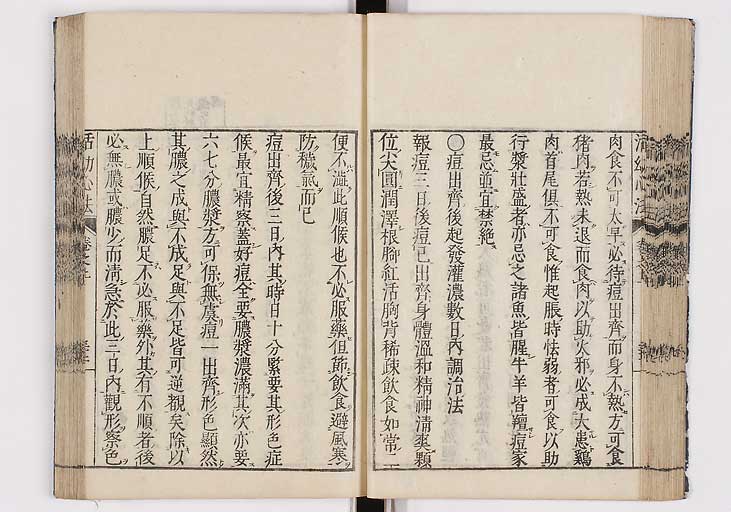 肉食不可太早必待痘出齊而身不熱方可食
猪肉若熱未退而食肉以助火邪必成大患鷄
肉首尾俱不可食惟起脹時怯弱者可食以助
行漿壯盛者亦忌之諸魚皆腥牛羊皆羶痘家
最忌並宜禁絶
〇痘出齊後起發灌濃數日內調治法
報痘三日後痘已出齊身體溫和精神淸爽顆
位尖圓潤澤根脚紅活胸背稀疎飲食如常二
便不澁此順候也不必服藥但節飲食避風寒
防穢氣而已
痘出齊後三日內其時日十分緊要其形色症
候最宜精察蓋好痘全要膿漿濃滿其次亦要
六七分膿漿方可保無虞痘一出齊形色顯然
其膿之成與不成足與不足皆可逆覩矣除以
上順候自然膿足不必服藥外其有不順者後
必無膿或膿少而清急於此三日內觀形察色
活幼心法